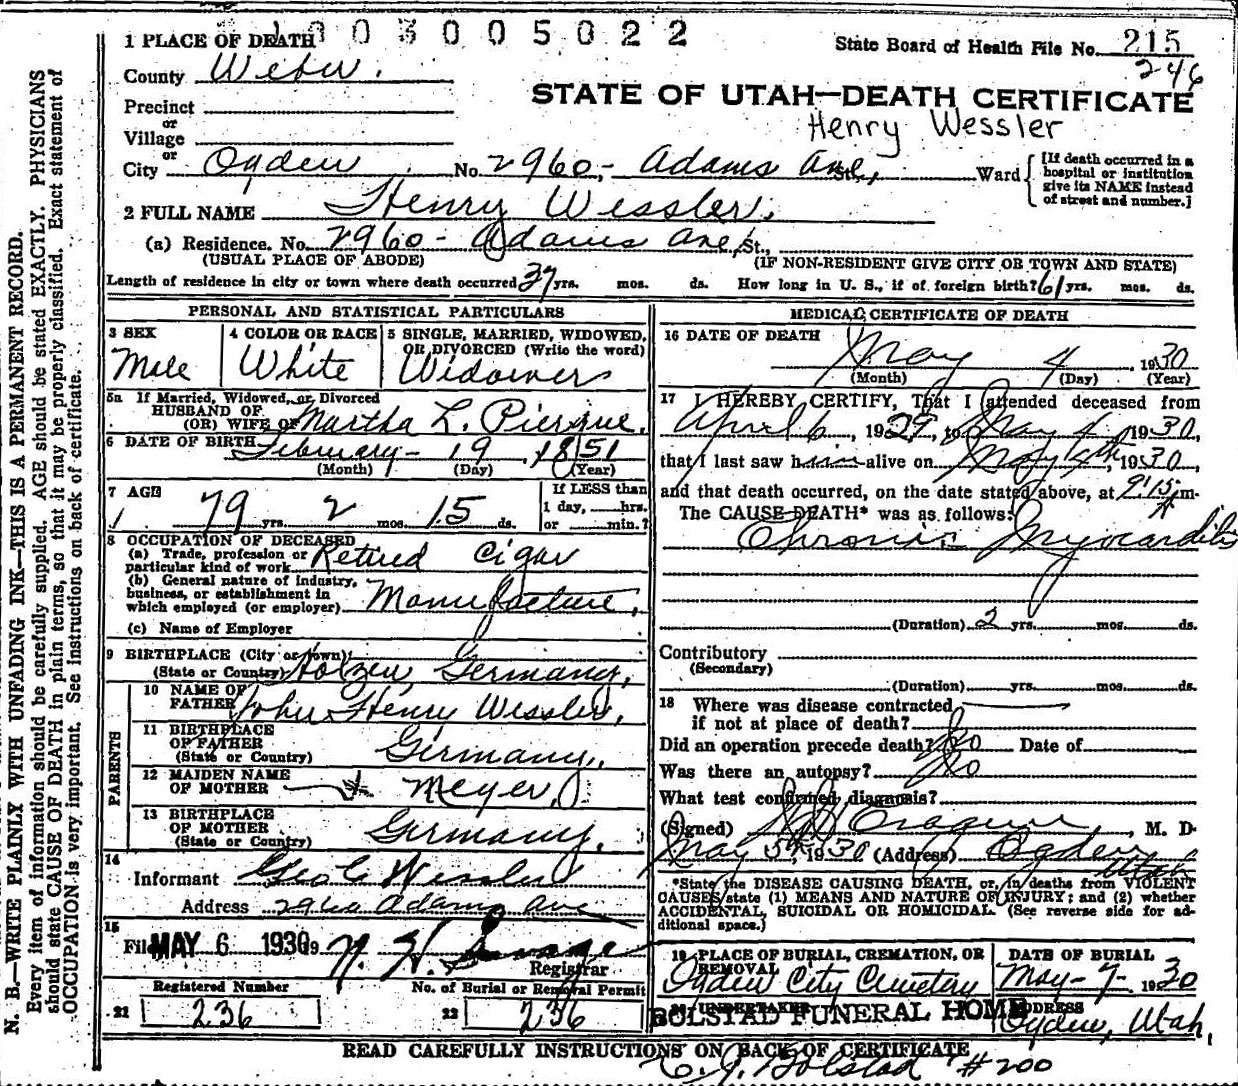 1 PLACE OF DEATH 1003005022
State Board of Health File No. 215
246
County Weber.
STATE OF UTAH—DEATH CERTIFICATE
Henry Wessler
Precinct
or
Village
or
City Ogden No. 2960 - Adams Ave, St., Ward
[If death occurred in a
hospital or institution
give its NAME instead
of street and number.]
2 FULL NAME Henry Wessler.
(a) Residence. No. 2960 - Adams Ave, St.,
(USUAL PLACE OF ABODE) (IF NON-RESIDENT GIVE CITY OR TOWN AND STATE)
Length of residence in city or town where death occurred 37 yrs. mos. ds. How long in U. S., if of foreign birth? 61 yrs. mos. ds.
PERSONAL AND STATISTICAL PARTICULARS
3 SEX 4 COLOR OR RACE 5 SINGLE, MARRIED, WIDOWED,
OR DIVORCED (Write the word)
Male White Widower
5a If Married, Widowed, or Divorced
HUSBAND OF
(OR) WIFE OF Martha L.
6 DATE OF BIRTH February - 19, 1851
(Month) (Day) (Year)
7 AGE If LESS than
1 day, hrs.
79 yrs. 2 mos. 15 ds. or min.?
8 OCCUPATION OF DECEASED
(a) Trade, profession or
particular kind of work Retired Cigar
(b) General nature of industry,
business, or establishment in
which employed (or employer) Manufacture.
(c) Name of Employer
9 BIRTHPLACE (City or town)
(State or Country) Holzen Germany.
PARENTS
10 NAME OF
FATHER John Henry Wessler.
11 BIRTHPLACE
OF FATHER
(State or Country) Germany.
12 MAIDEN NAME
OF MOTHER Meyer.
13 BIRTHPLACE
OF MOTHER
(State or Country) Germany.
14
Informant Geo C Wessler
Address 2960 Adams Ave
15
Filed MAY 6 1930 N. H. Savage
Registrar
Registered Number No. of Burial or Removal Permit
21 236 22 236
MEDICAL CERTIFICATE OF DEATH
16 DATE OF DEATH
May 4 1930
(Month) (Day) (Year)
17 I HEREBY CERTIFY, That I attended deceased from
April 6, 1929, to May 4, 1930,
that I last saw him alive on May 4th, 1930,
and that death occurred, on the date stated above, at 9:15 m.
The CAUSE DEATH* was as follows:
Chronic Myocarditis
(Duration) 2 yrs. mos. ds.
Contributory
(Secondary)
(Duration) yrs. mos. ds.
18 Where was disease contracted
if not at place of death?
Did an operation precede death? No Date of
Was there an autopsy? No
What test confirmed diagnosis?
(Signed) , M. D.
May 5th, 1930 (Address) Ogden
Utah
*State the DISEASE CAUSING DEATH, or, in deaths from VIOLENT
CAUSES, state (1) MEANS AND NATURE OF INJURY; and (2) whether
ACCIDENTAL, SUICIDAL OR HOMICIDAL. (See reverse side for ad-
ditional space.)
19 PLACE OF BURIAL, CREMATION, OR
REMOVAL DATE OF BURIAL
Ogden City Cemetery May - 7 - 1930
20 UNDERTAKER ADDRESS
BOLSTAD FUNERAL HOME Ogden, Utah.
READ CAREFULLY INSTRUCTIONS ON BACK OF CERTIFICATE
C. J. Bolstad #200
N. B.—WRITE PLAINLY WITH UNFADING INK—THIS IS A PERMANENT RECORD.
Every item of information should be carefully supplied. AGE should be stated EXACTLY. PHYSICIANS
should state CAUSE OF DEATH in plain terms, so that it may be properly classified. Exact statement of
OCCUPATION is very important. See instructions on back of certificate.